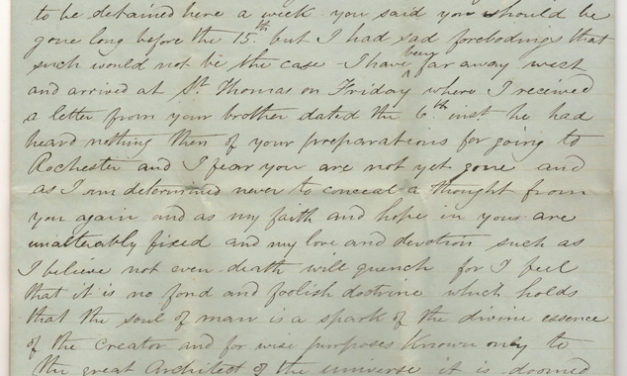 to be detained here a week you said you should be
gone long before the 15th but I had sad forebodings that
such would not be the case - I have been far away west
and arrived at St Thomas on Friday where I received
a letter from your brother dated the 6th inst he had
heard nothing then of your preparations for going to
Rochester and I fear you are not yet gone and
as I am determined never to conceal a thought from
you again and as my faith and hope in you are
unalterably fixed and my love and devotion such as
I believe not even death will quench for I feel
that it is no fond and foolish doctrine which holds
that the soul of man is a spark of the divine essence
of the Creator and for wise purposes known only to
the great Architect of the universe it is doomed